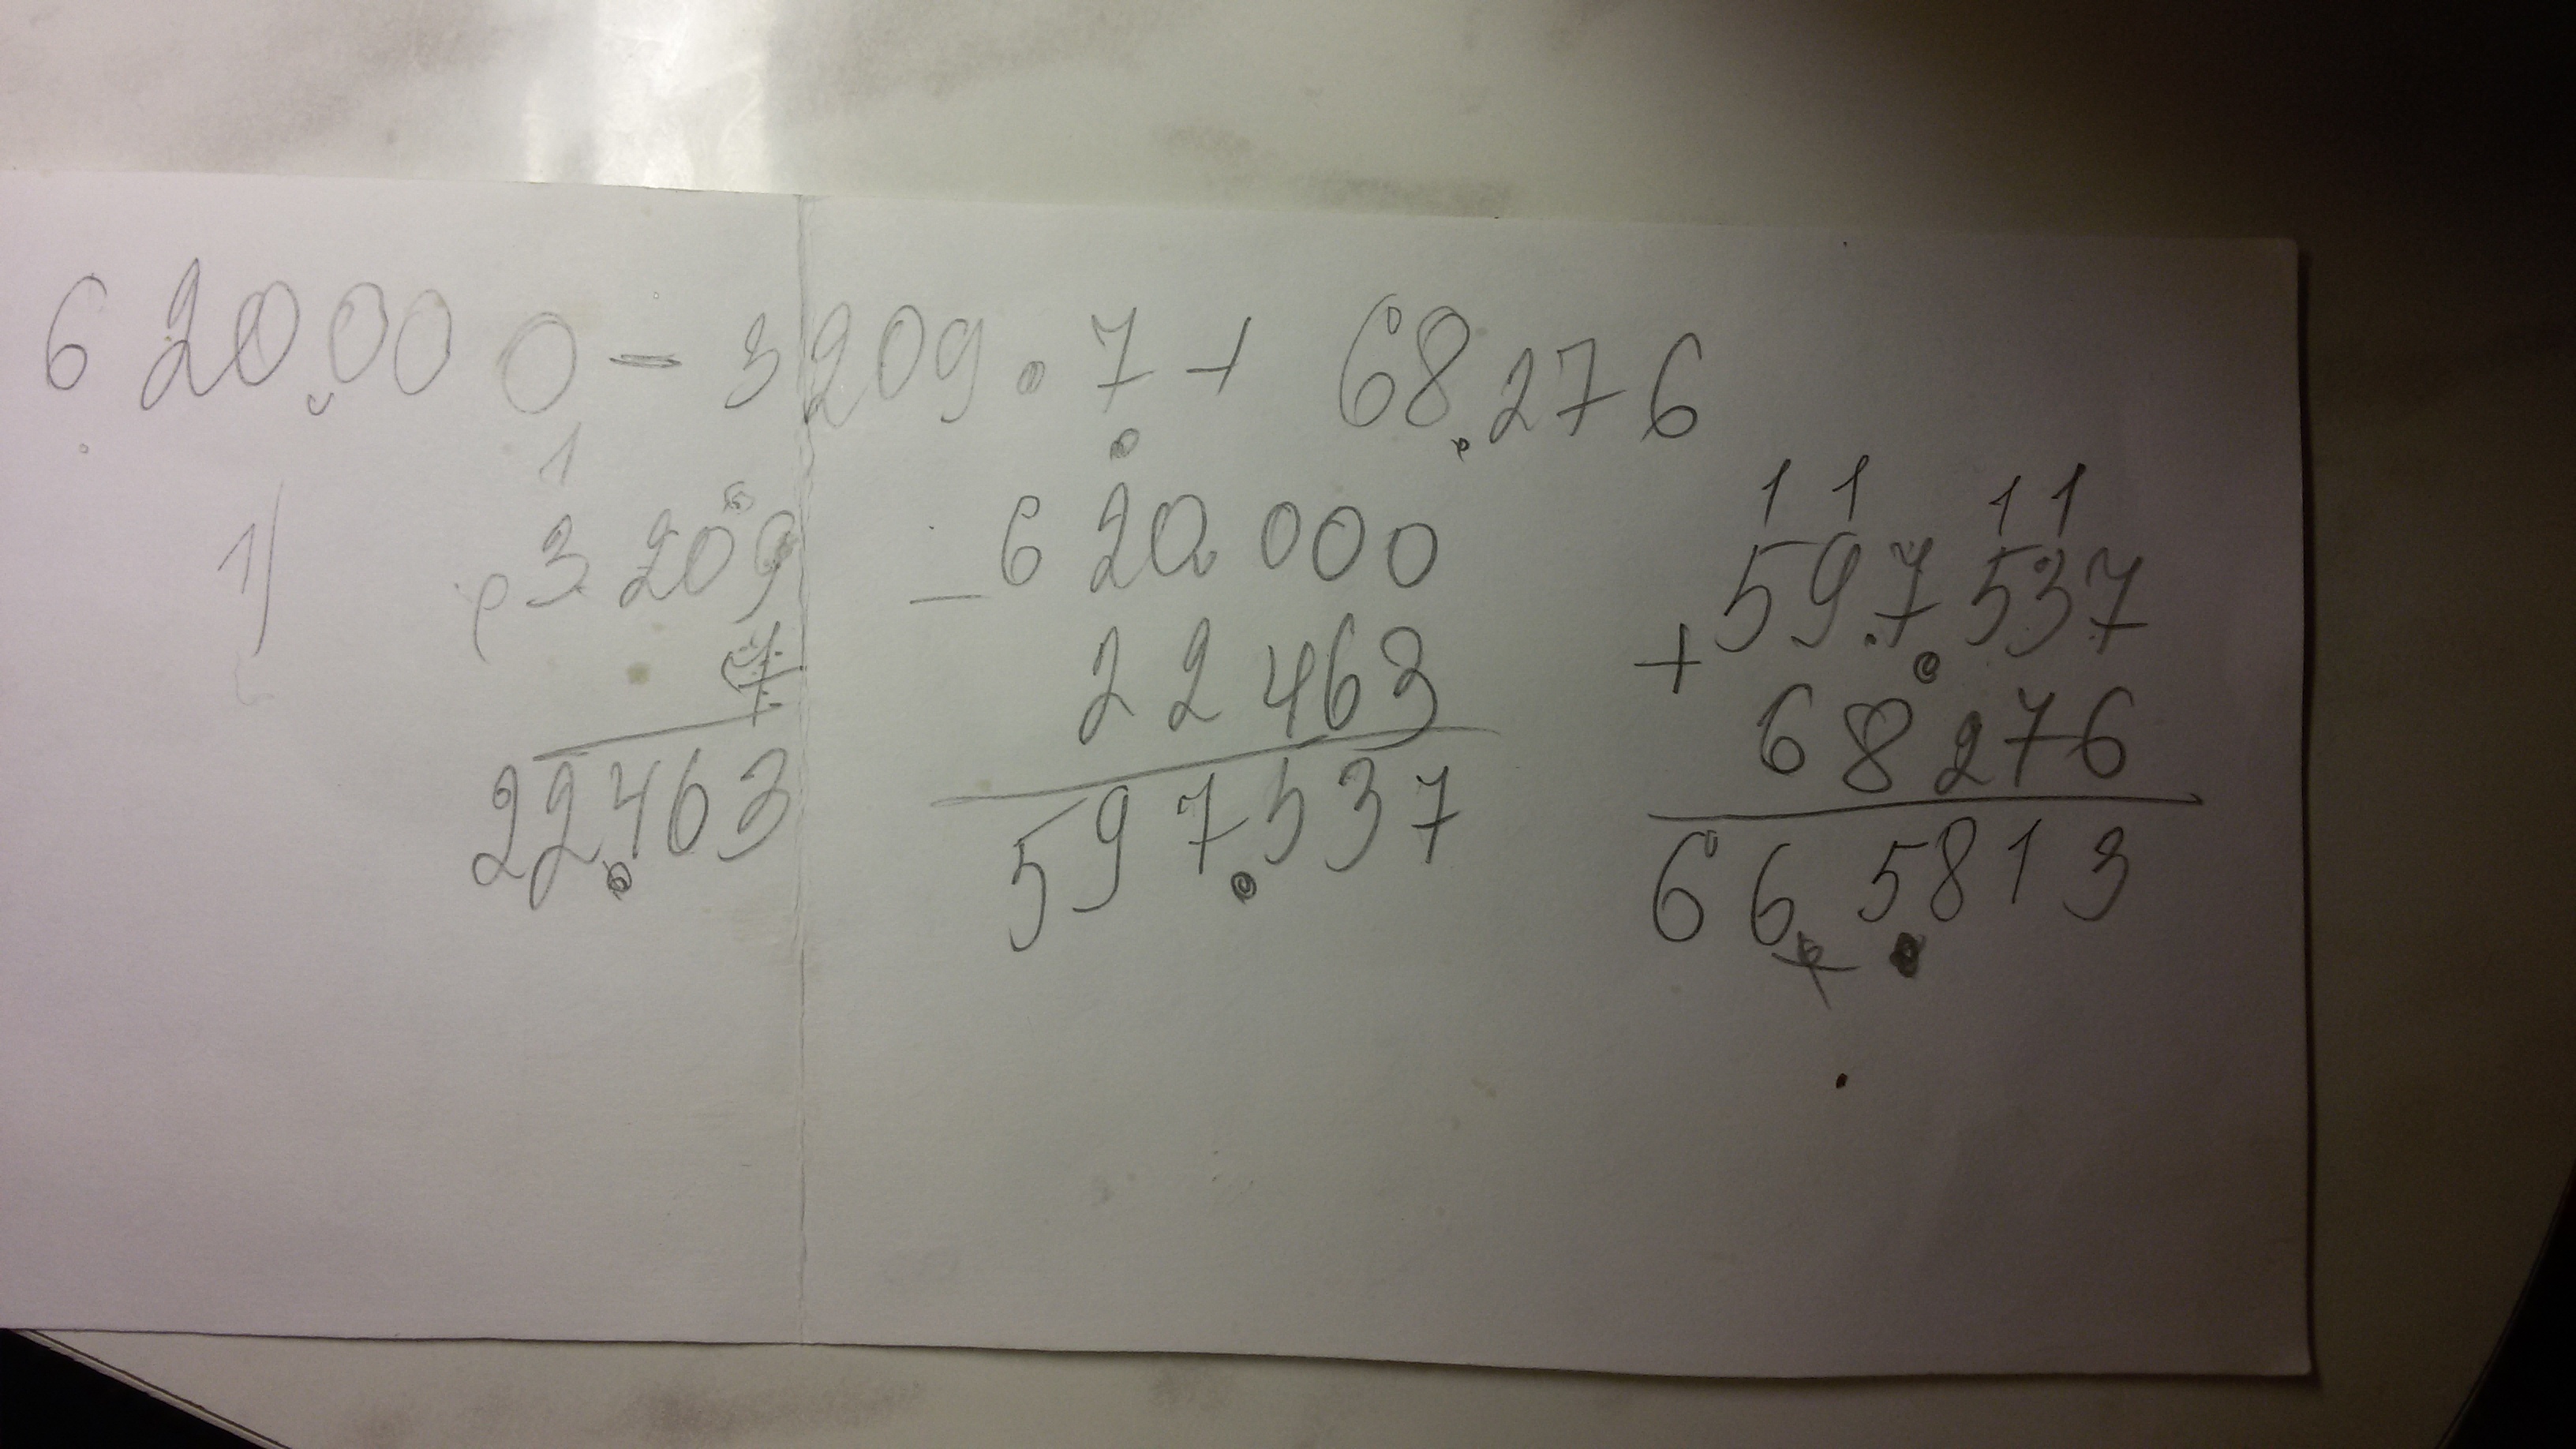 620.000 - 3209 . 7 + 68.276
1)
1
3.209
7
22.463
- 620.000
22463
597.537
11 11
597.537
+
68276
66 5.813